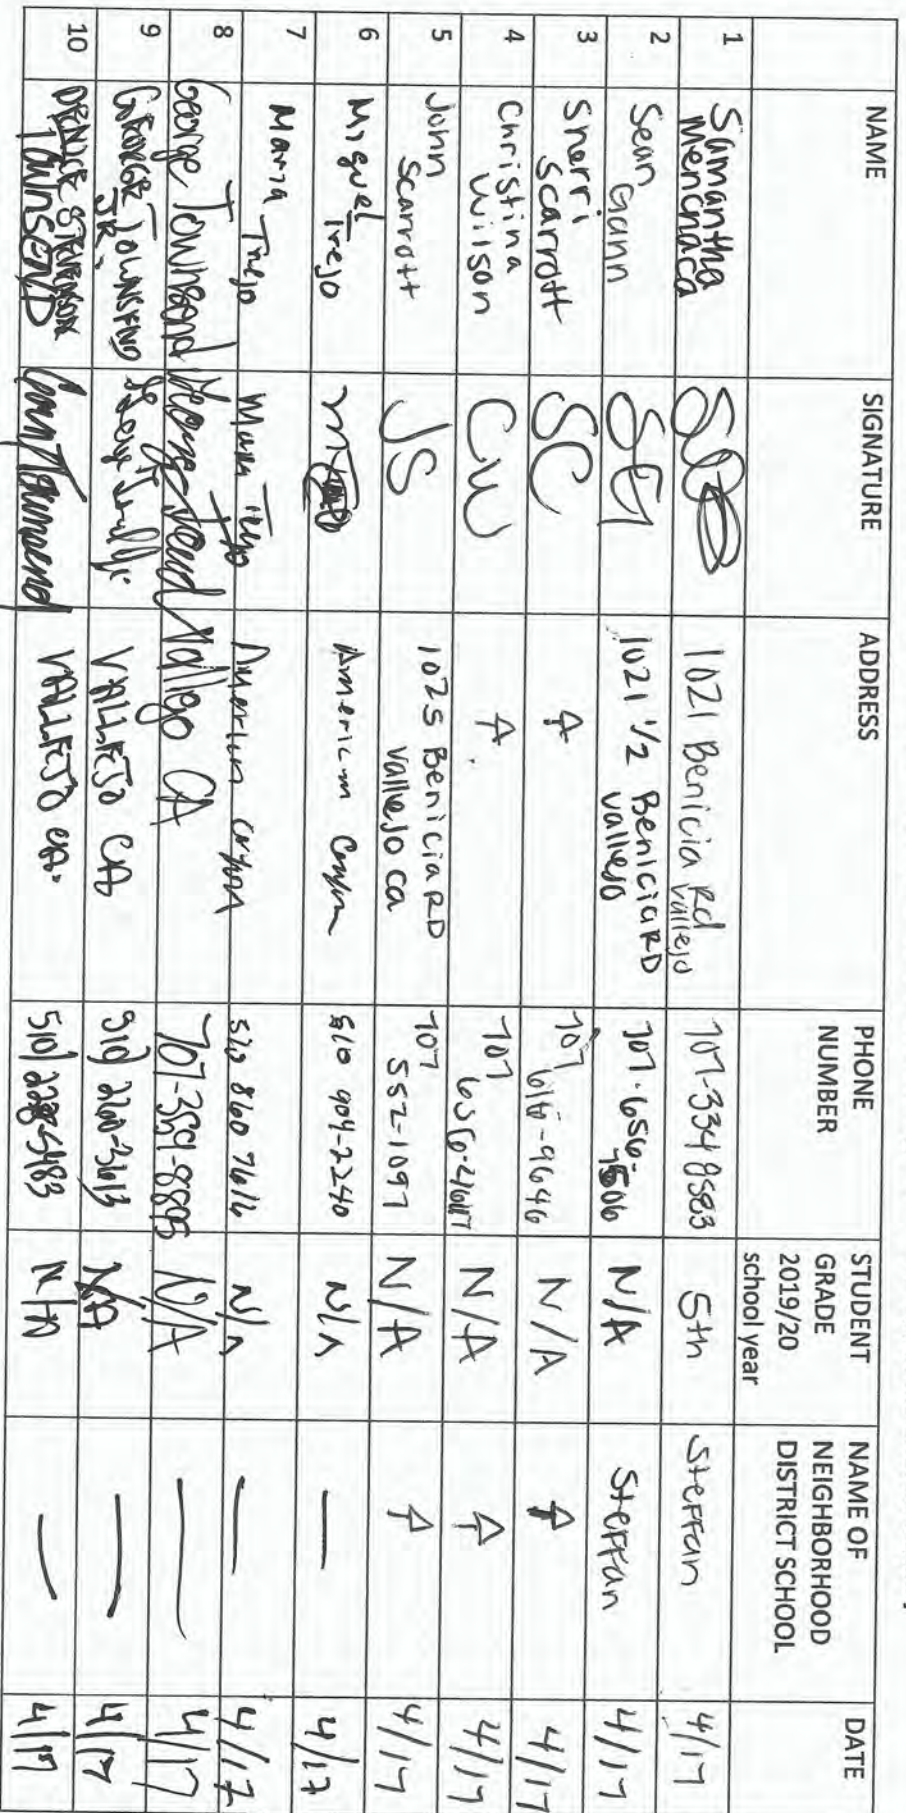 NAME
SIGNATURE
ADDRESS
PHONE
NUMBER
STUDENT
GRADE
2019/20
school year
NAME OF
NEIGHBORHOOD
DISTRICT SCHOOL
DATE
1
Samantha
Menchaca
1021 Benicia Rd
Vallejo
707-334 8583
5th
Steffan
4/17
2
Sean Gann
SG
1021 1/2 Benicia RD
Vallejo
707-656-
7506
N/A
Steffan
4/17
3
Sherri
Scarrott
SC
707
616-9646
N/A
4/17
4
Christina
Wilson
CW
707
N/A
4/17
5
John
Scarrott
JS
1025 Benicia RD
Vallejo ca
707
552-1097
N/A
4/17
6
Miguel
Trejo
American Canyon
510 909-2240
N/A
—
4/17
7
Maria Trejo
Maria Trejo
American Canyon
510 860 7616
N/A
—
4/17
8
George Townsend
Vallejo CA
707-359-8805
N/A
—
4/17
9
GEORGE TOWNSEND
JR.
VALLEJO CA
N/A
—
4/17
10
DENICE
TOWNSEND
VALLEJO CA.
N/A
—
4/17